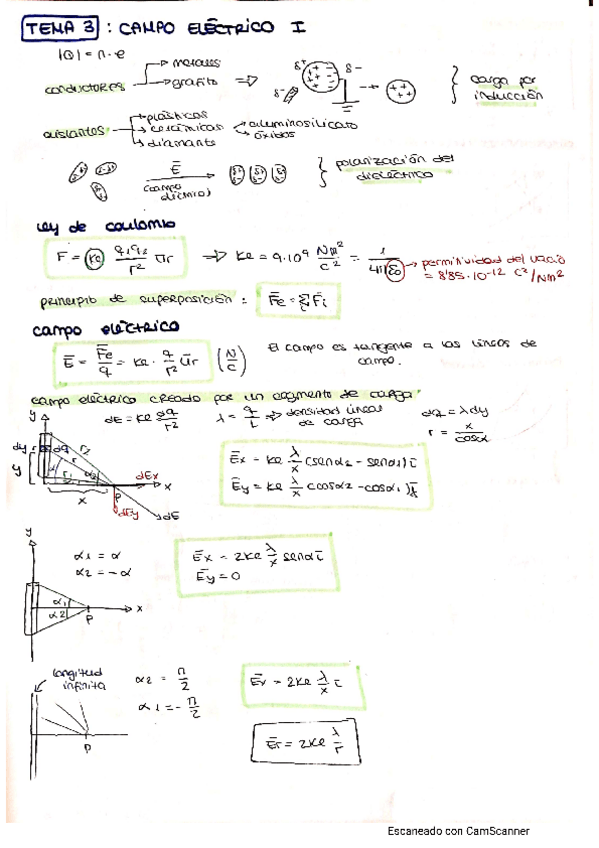 TEMA 3 : CAMPO ELÉCTRICO I
|Q| = n · e
conductores → metales
→ grafito ⇒ δ+ δ- δ- → carga por inducción
aislantes → plásticos
→ cerámicas → aluminosilicato
→ óxidos
→ diamante
E (campo eléctrico) polarización del dieléctrico
Ley de Coulomb
F = Ke q1q2/r² ūr → Ke = 9·10⁹ Nm²/C² = 1/4πε0 → permitividad del vacío = 8'85·10⁻¹² C²/Nm²
principio de superposición : F̄e = Σ F̄i
campo eléctrico
Ē = F̄e/q = Ke · q/r² ūr (N/C) El campo es tangente a las líneas de campo.
campo eléctrico creado por un segmento de carga:
dE = Ke dq/r² λ = q/L ⇒ densidad lineal de carga dq = λdy
r = x/cosα
y dy r2 r r1 α2 dEx x P dEy dE
Ēx = Ke λ/x (senα2 - senα1) ī
Ēy = Ke λ/x (cosα2 - cosα1) k̄
y α1 α2 P x
α1 = α
α2 = -α
Ēx = 2Ke λ/x senα ī
Ēy = 0
longitud infinita
P
α2 = π/2
α1 = -π/2
Ēx = 2Ke λ/x ī
Ēr = 2Ke λ/r
Escaneado con CamScanner